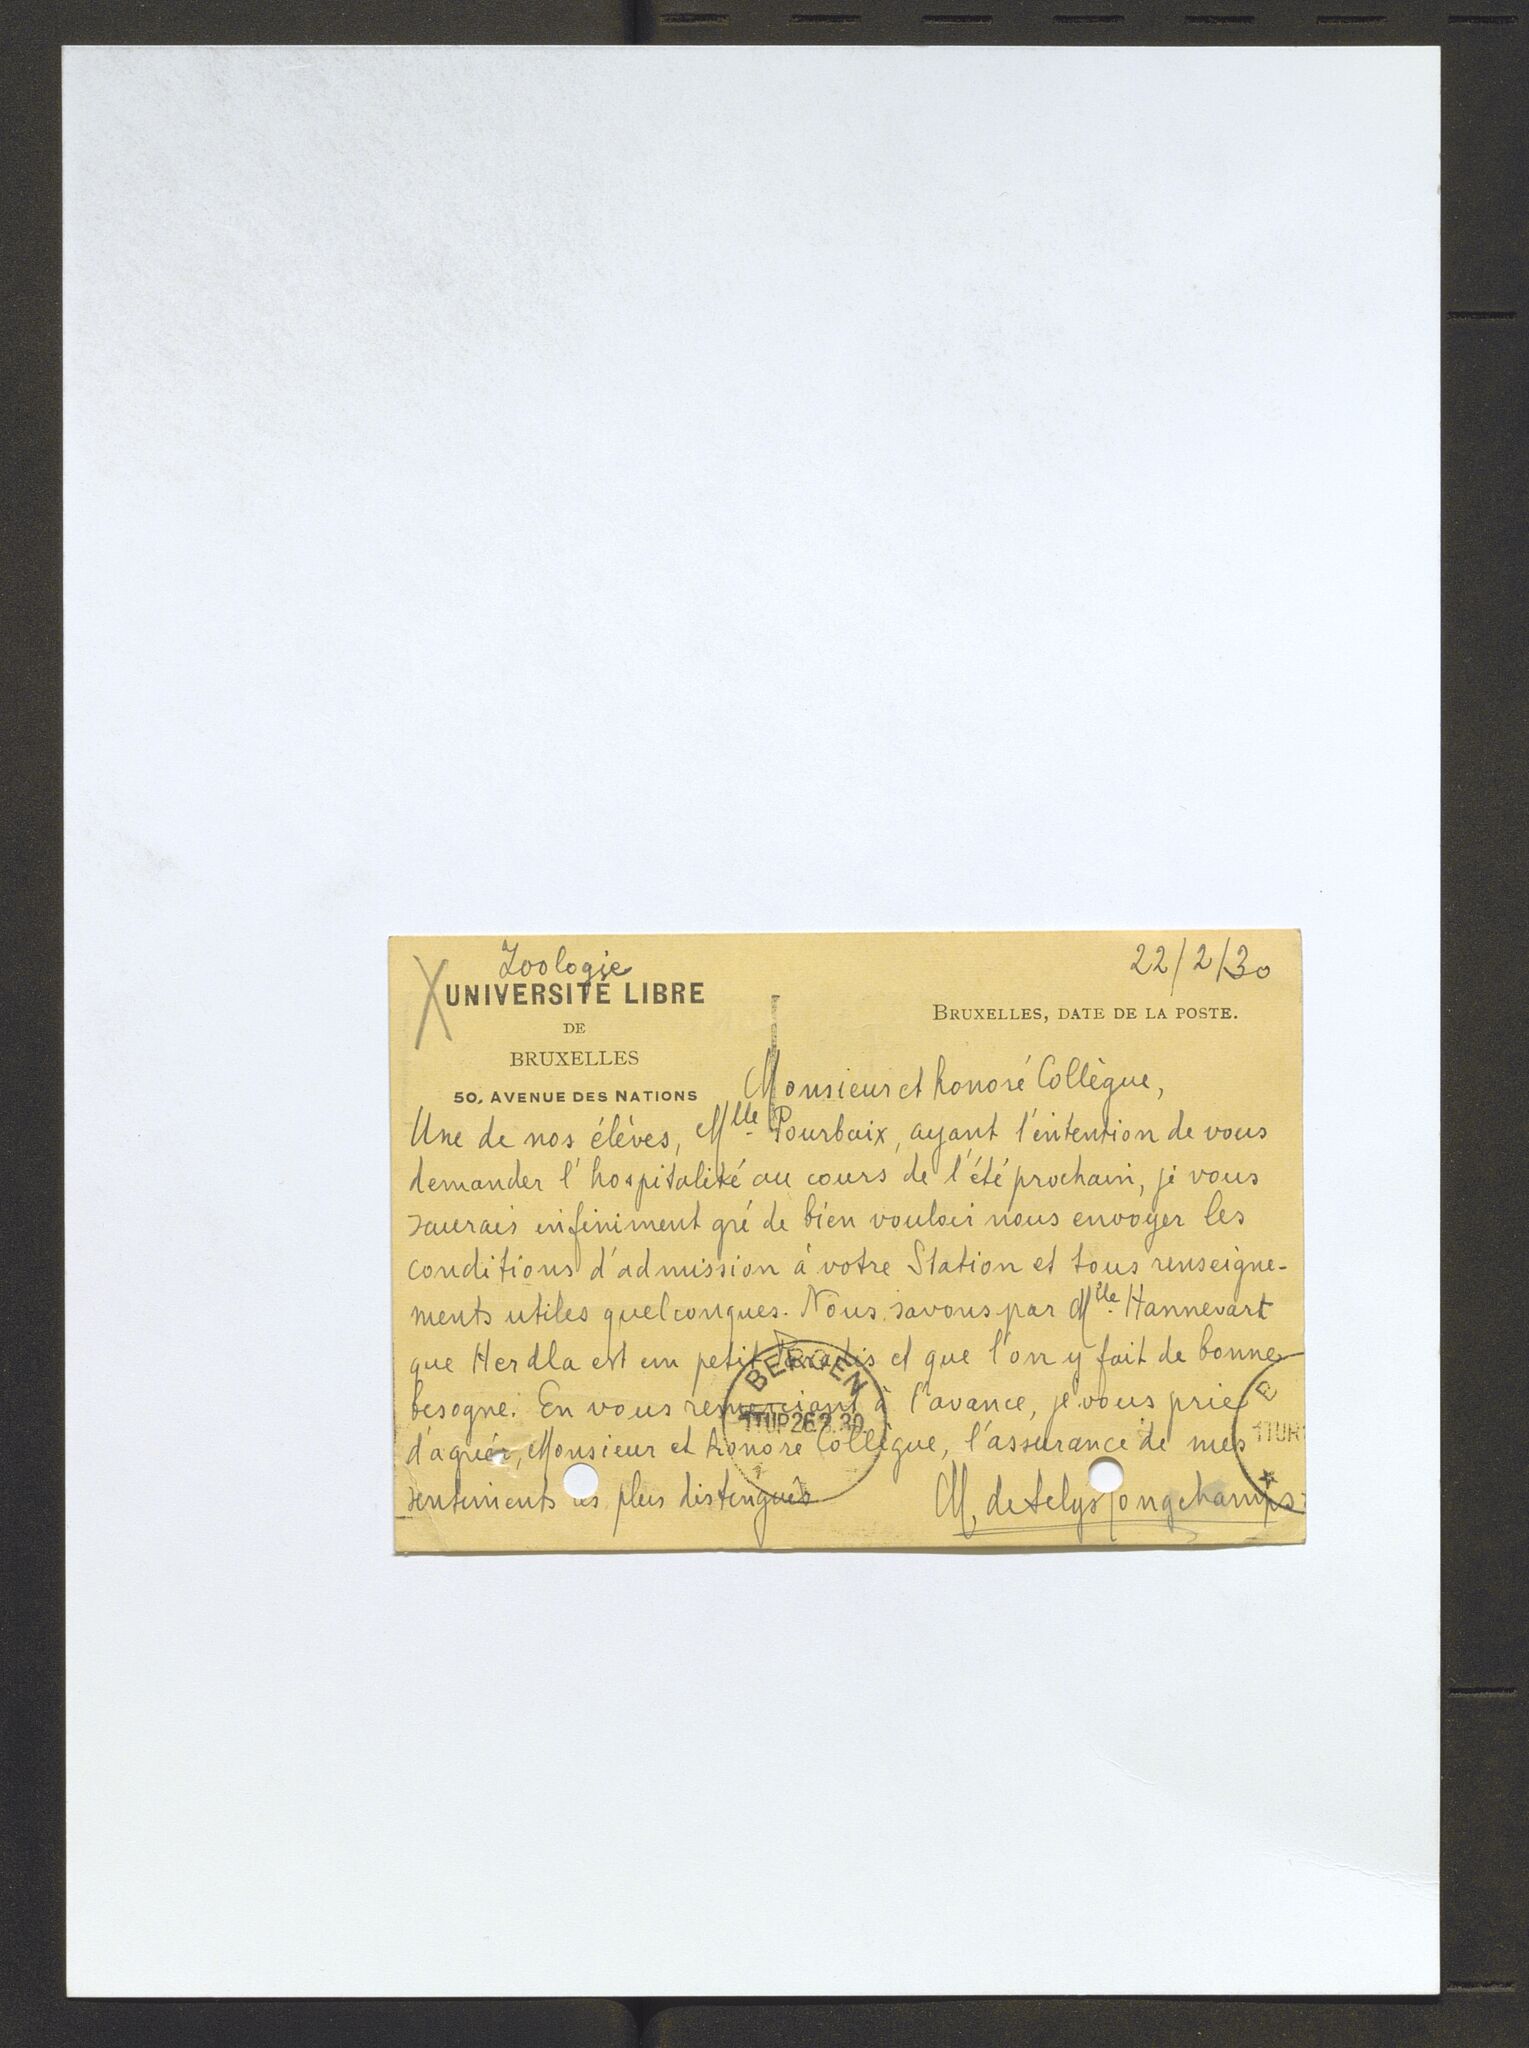 Zoologie
UNIVERSITÉ LIBRE
DE
BRUXELLES
50, AVENUE DES NATIONS
22/2/30
BRUXELLES, DATE DE LA POSTE.
Monsieur et honoré Collègue,
Une de nos élèves, Mlle Pourbaix, ayant l'intention de vous
demander l'hospitalité au cours de l'été prochain, je vous
saurais infiniment gré de bien vouloir nous envoyer les
conditions d'admission à votre Station et tous renseigne-
ments utiles quelconques. Nous savons par Mlle Hannevart
que Herdla est un petit Paradis et que l'on y fait de bonne
besogne. En vous remerciant à l'avance, je vous prie
d'agréer, Monsieur et honoré Collègue, l'assurance de mes
sentiments les plus distingués
M. de Selys Longchamps
BERGEN
11UP 26.2.30